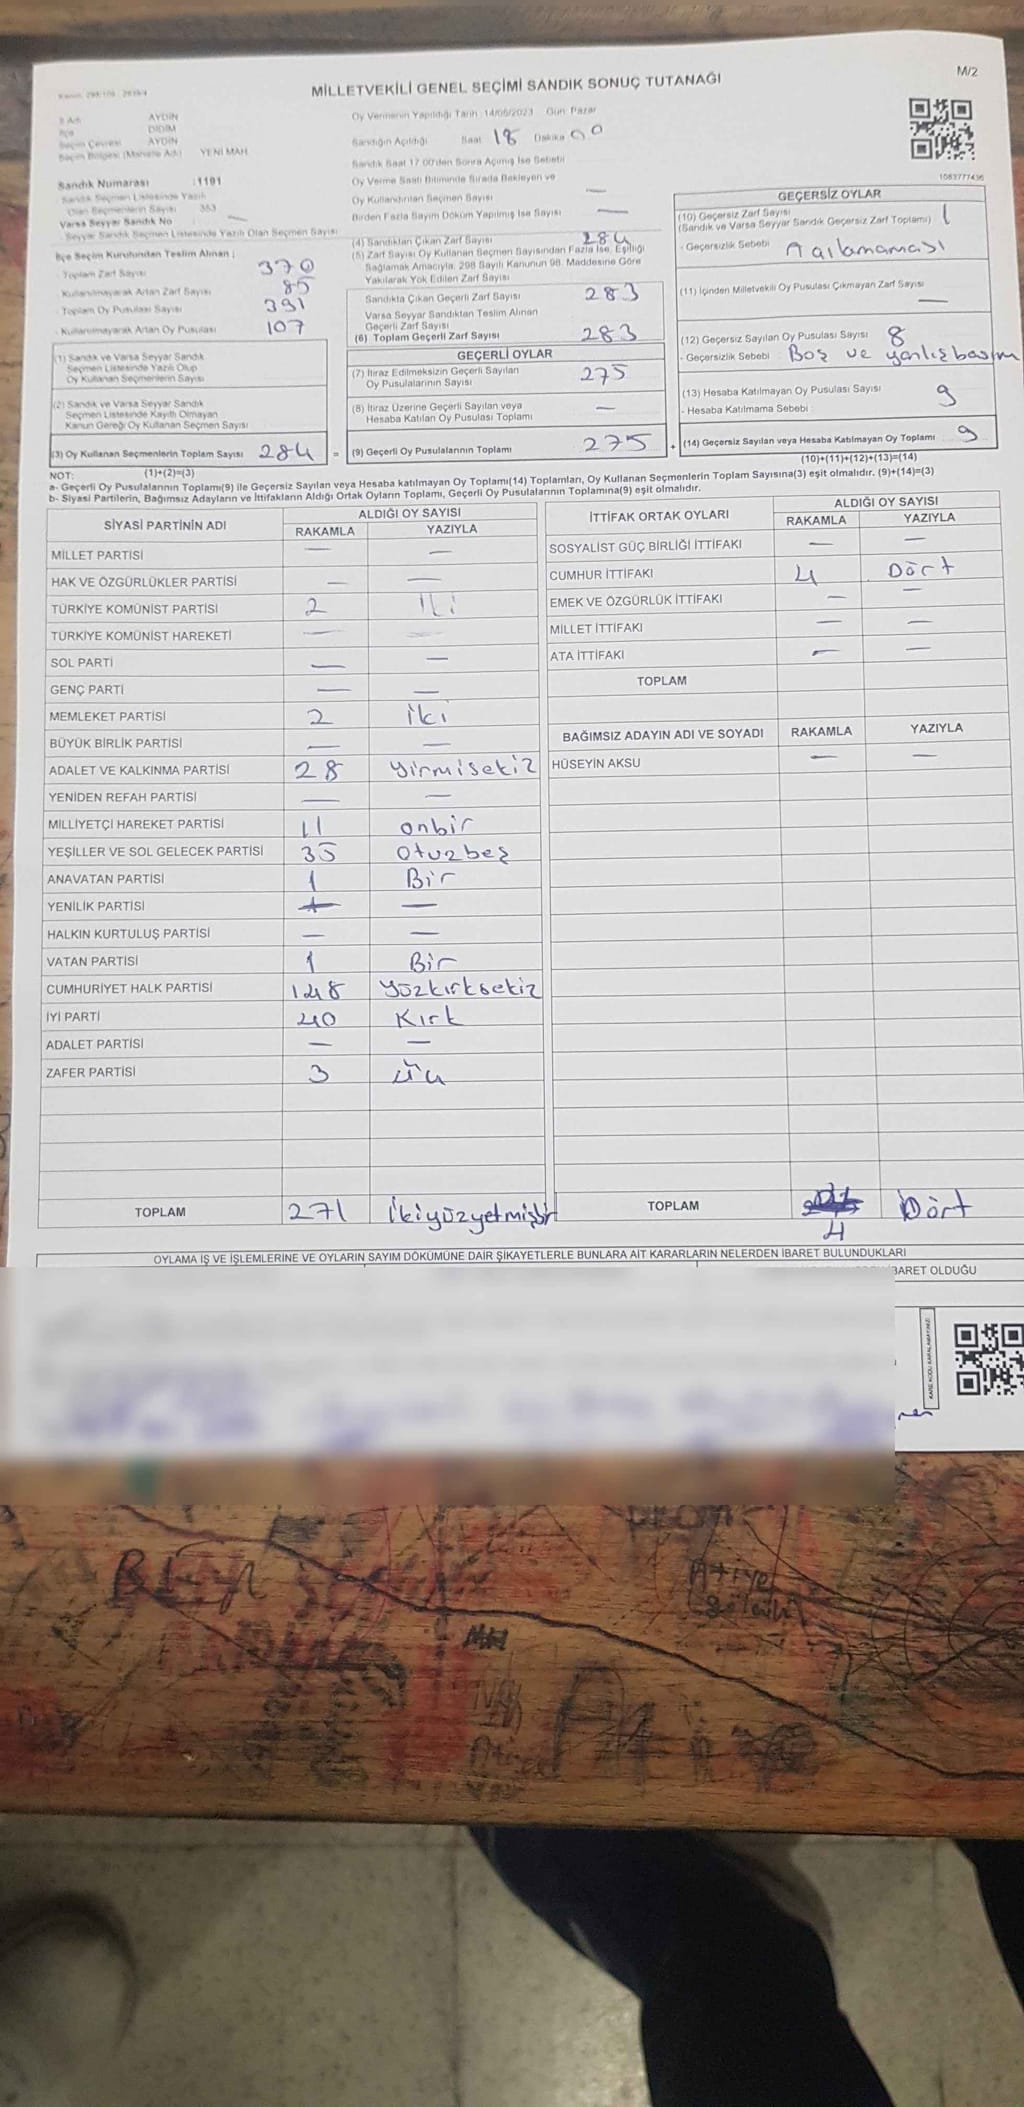 M/2
MİLLETVEKİLİ GENEL SEÇİMİ SANDIK SONUÇ TUTANAĞI
AYDIN
DİDİM
AYDIN
Seçim Bölgesi (Mahalle Adı) YENİ MAH.
Sandık Numarası :1191
Sandık Seçmen Listesinde Yazılı
Olan Seçmenlerin Sayısı 353
Varsa Seyyar Sandık No —
Seyyar Sandık Seçmen Listesinde Yazılı Olan Seçmen Sayısı
İlçe Seçim Kurulundan Teslim Alınan ;
Toplam Zarf Sayısı 370
Kullanılmayarak Artan Zarf Sayısı 85
Toplam Oy Pusulası Sayısı 391
Kullanılmayarak Artan Oy Pusulası 107
(1) Sandık ve Varsa Seyyar Sandık
Seçmen Listesinde Yazılı Olup
Oy Kullanan Seçmenlerin Sayısı
(2) Sandık ve Varsa Seyyar Sandık
Seçmen Listesinde Kayıtlı Olmayan
Kanun Gereği Oy Kullanan Seçmen Sayısı
(3) Oy Kullanan Seçmenlerin Toplam Sayısı 284 =
(1)+(2)=(3)
Oy Vermenin Yapıldığı Tarih :14/05/2023 Gün: Pazar
Sandığın Açıldığı Saat 18 Dakika 00
Sandık Saat 17.00'den Sonra Açılmış İse Sebebi
Oy Verme Saati Bitiminde Sırada Bekleyen ve
Oy Kullandırılan Seçmen Sayısı —
Birden Fazla Sayım Döküm Yapılmış İse Sayısı —
(4) Sandıktan Çıkan Zarf Sayısı 284
(5) Zarf Sayısı Oy Kullanan Seçmen Sayısından Fazla İse, Eşitliği
Sağlamak Amacıyla, 298 Sayılı Kanunun 98. Maddesine Göre
Yakılarak Yok Edilen Zarf Sayısı
Sandıkta Çıkan Geçerli Zarf Sayısı 283
Varsa Seyyar Sandıktan Teslim Alınan
Geçerli Zarf Sayısı
(6) Toplam Geçerli Zarf Sayısı 283
GEÇERLİ OYLAR
(7) İtiraz Edilmeksizin Geçerli Sayılan
Oy Pusulalarının Sayısı 275
(8) İtiraz Üzerine Geçerli Sayılan veya
Hesaba Katılan Oy Pusulası Toplamı —
(9) Geçerli Oy Pusulalarının Toplamı 275 +
1083777436
GEÇERSİZ OYLAR
(10) Geçersiz Zarf Sayısı
(Sandık ve Varsa Seyyar Sandık Geçersiz Zarf Toplamı) 1
- Geçersizlik Sebebi Açılamaması
(11) İçinden Milletvekili Oy Pusulası Çıkmayan Zarf Sayısı
—
(12) Geçersiz Sayılan Oy Pusulası Sayısı 8
- Geçersizlik Sebebi Boş ve yanlış basım
(13) Hesaba Katılmayan Oy Pusulası Sayısı 9
- Hesaba Katılmama Sebebi
(14) Geçersiz Sayılan veya Hesaba Katılmayan Oy Toplamı 9
(10)+(11)+(12)+(13)=(14)
NOT:
a- Geçerli Oy Pusulalarının Toplamı(9) ile Geçersiz Sayılan veya Hesaba katılmayan Oy Toplamı(14) Toplamları, Oy Kullanan Seçmenlerin Toplam Sayısına(3) eşit olmalıdır. (9)+(14)=(3)
b- Siyasi Partilerin, Bağımsız Adayların ve İttifakların Aldığı Ortak Oyların Toplamı, Geçerli Oy Pusulalarının Toplamına(9) eşit olmalıdır.
SİYASİ PARTİNİN ADI ALDIĞI OY SAYISI
RAKAMLA YAZIYLA
MİLLET PARTİSİ — —
HAK VE ÖZGÜRLÜKLER PARTİSİ — —
TÜRKİYE KOMÜNİST PARTİSİ 2 İki
TÜRKİYE KOMÜNİST HAREKETİ — —
SOL PARTİ — —
GENÇ PARTİ — —
MEMLEKET PARTİSİ 2 İki
BÜYÜK BİRLİK PARTİSİ — —
ADALET VE KALKINMA PARTİSİ 28 Yirmisekiz
YENİDEN REFAH PARTİSİ — —
MİLLİYETÇİ HAREKET PARTİSİ 11 onbir
YEŞİLLER VE SOL GELECEK PARTİSİ 35 Otuzbeş
ANAVATAN PARTİSİ 1 Bir
YENİLİK PARTİSİ — —
HALKIN KURTULUŞ PARTİSİ — —
VATAN PARTİSİ 1 Bir
CUMHURİYET HALK PARTİSİ 148 Yüzkırksekiz
İYİ PARTİ 40 Kırk
ADALET PARTİSİ — —
ZAFER PARTİSİ 3 Üç
TOPLAM 271 İkiyüzyetmişbir
İTTİFAK ORTAK OYLARI ALDIĞI OY SAYISI
RAKAMLA YAZIYLA
SOSYALİST GÜÇ BİRLİĞİ İTTİFAKI — —
CUMHUR İTTİFAKI 4 Dört
EMEK VE ÖZGÜRLÜK İTTİFAKI — —
MİLLET İTTİFAKI — —
ATA İTTİFAKI — —
TOPLAM
BAĞIMSIZ ADAYIN ADI VE SOYADI RAKAMLA YAZIYLA
HÜSEYİN AKSU — —
TOPLAM 4 Dört
OYLAMA İŞ VE İŞLEMLERİNE VE OYLARIN SAYIM DÖKÜMÜNE DAİR ŞİKAYETLERLE BUNLARA AİT KARARLARIN NELERDEN İBARET BULUNDUKLARI
BARET OLDUĞU